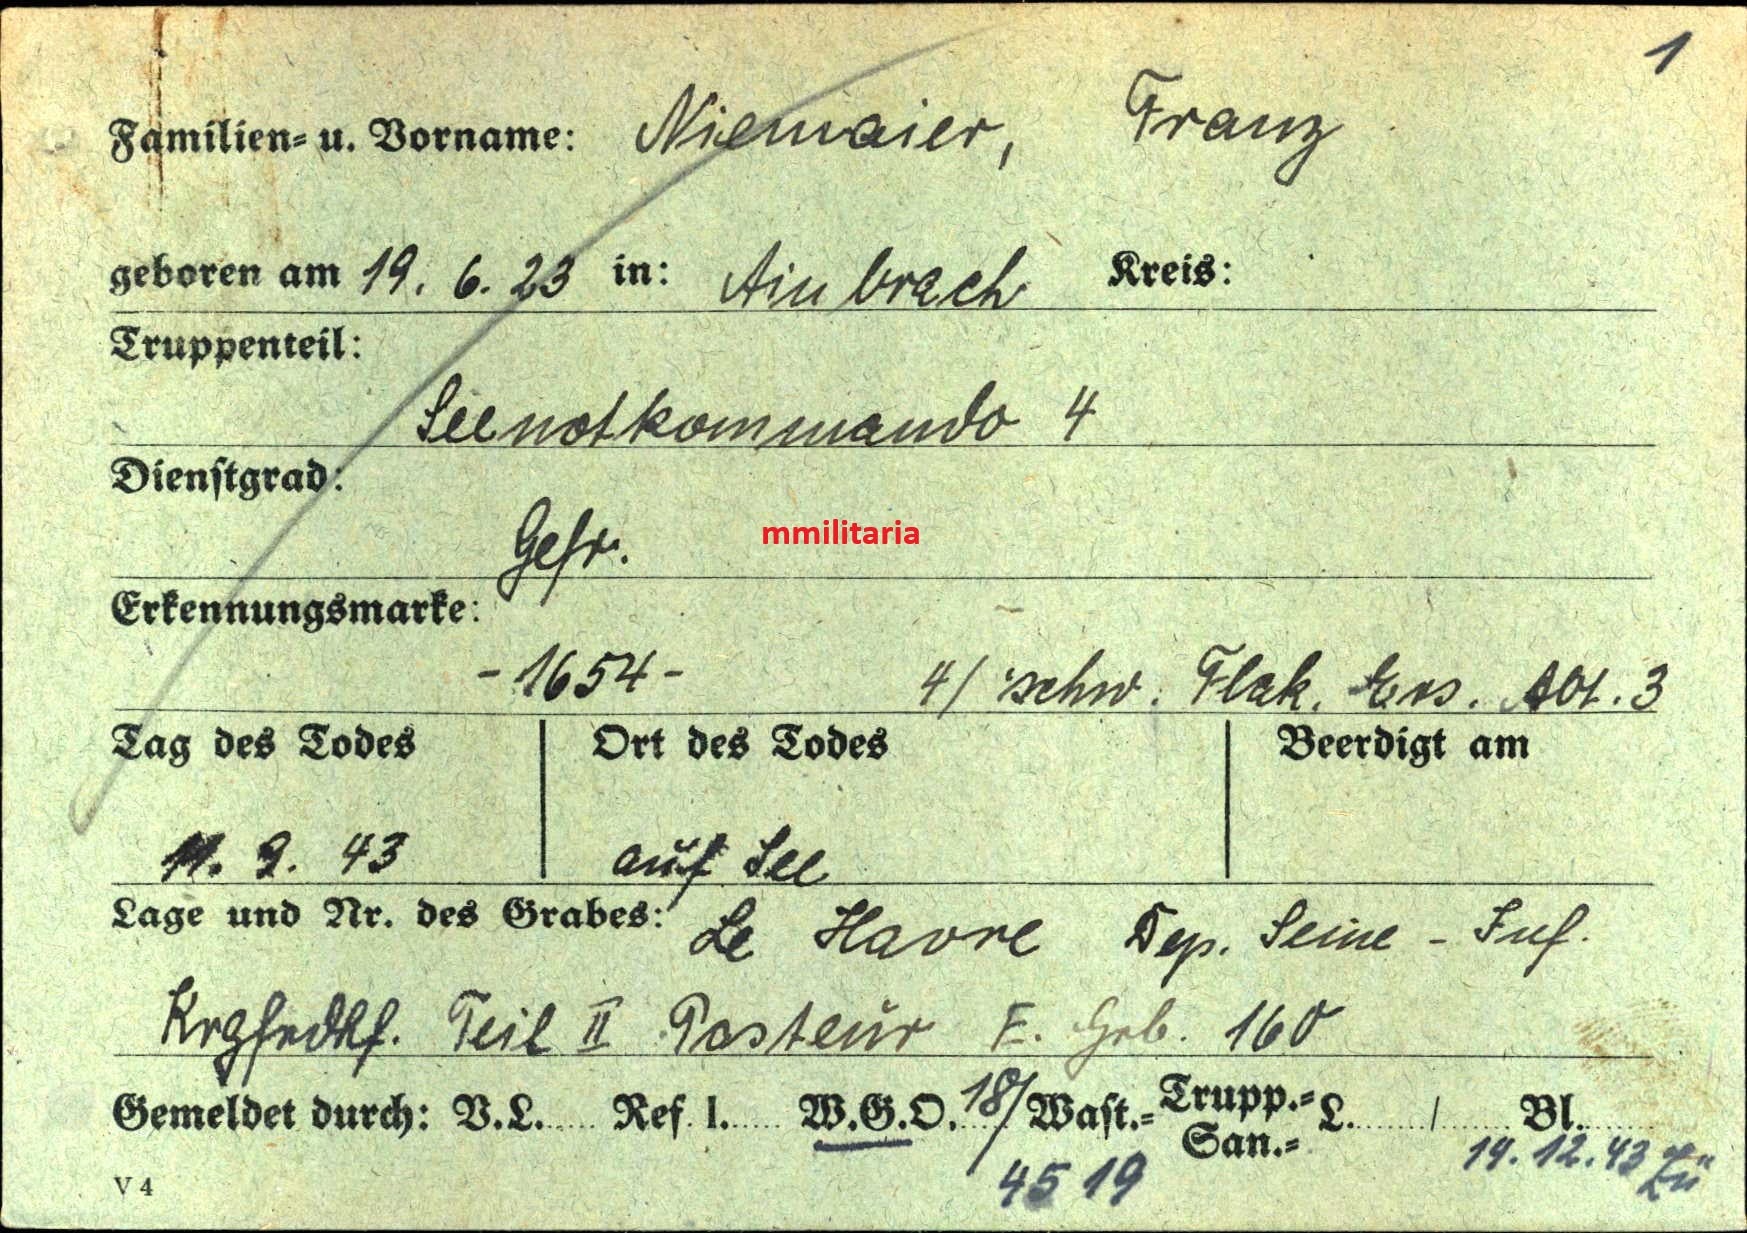 1
Familien- u. Vorname: Niemaier, Franz
geboren am 19. 6. 23 in: Ainbrach Kreis:
Truppenteil:
Seenotkommando 4
Dienstgrad:
Gefr.
mmilitaria
Erkennungsmarke:
-1654- 4/ schw. Flak. Ers. Abt. 3
Tag des Todes Ort des Todes Beerdigt am
11. 9. 43 auf See
Lage und Nr. des Grabes: Le Havre Dep. Seine - Inf.
Krgfrdhf. Teil II Pasteur E. Grb. 160
Gemeldet durch: V.L..... Ref. I..... W.G.O. 18/ Wast.= Trupp.= L......../....... Bl.......
San.=
4519 14.12.43 Zü
V 4